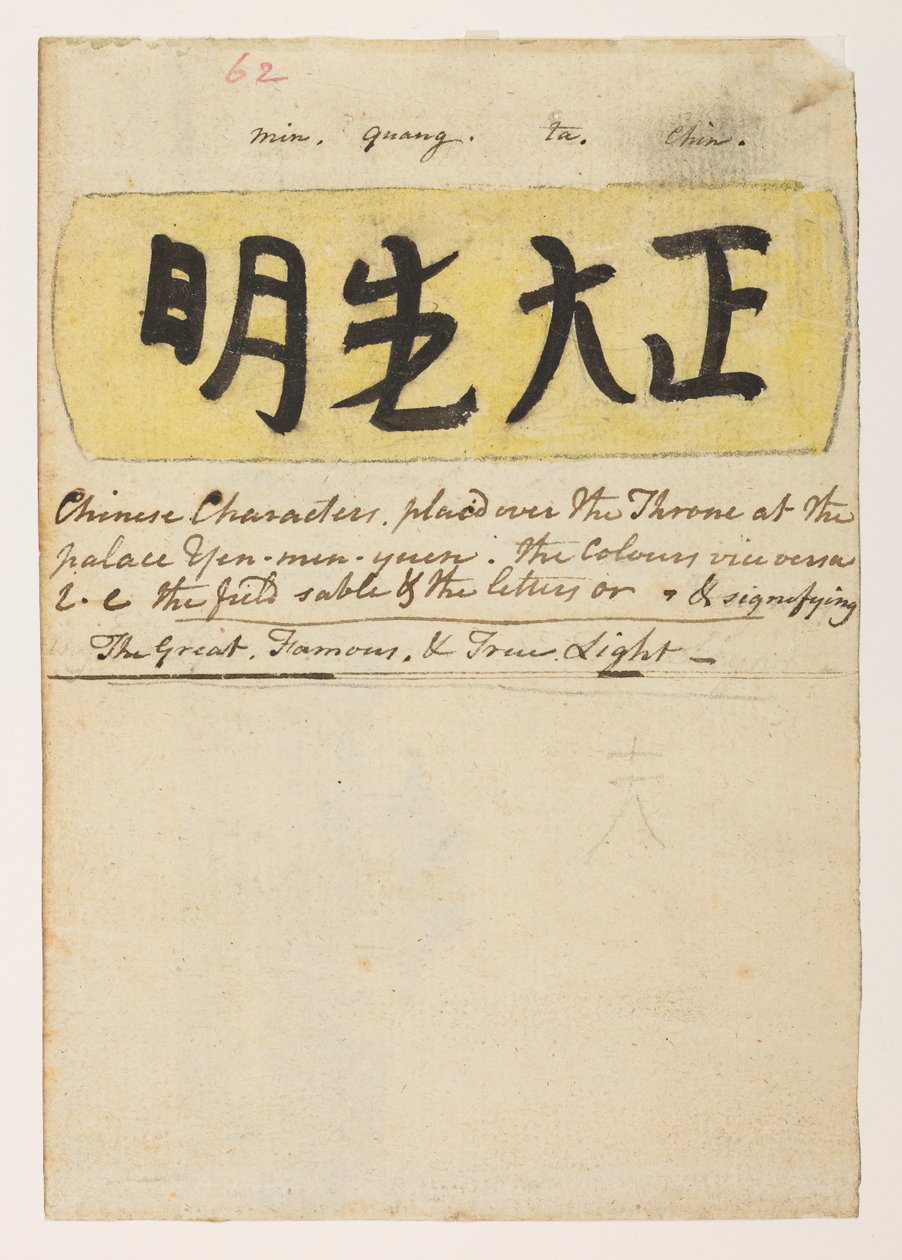 62
min. quang. ta. Chin.
正大光明
Chinese Characters, placd over the Throne at the
palace Yen-men-yuen. the Colours vice versa
i.e the field sable & the letters or, & signifying
The Great, Famous, & True Light —